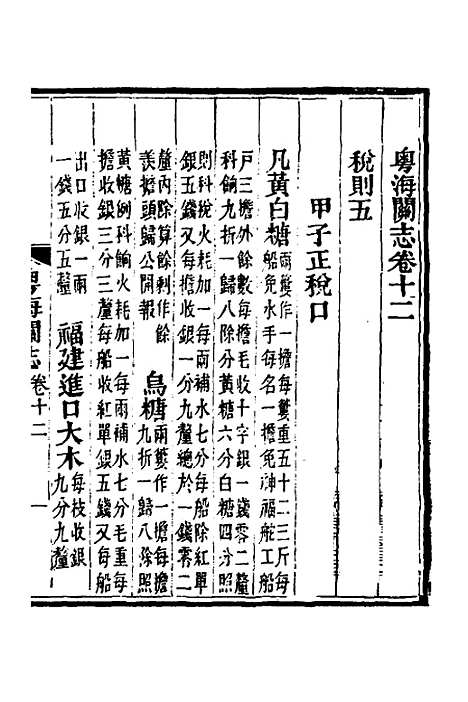 粵海關志卷十二
稅則五
甲子正稅口
凡黃白糖兩簍作一擔每簍重五十二三斤每
船免水手每名一擔免神福舵工船
戶三擔外餘數每擔毛收十字銀一錢零二釐
科餉九折一歸八除分黃糖六分白糖四分照
則科稅火耗加一每兩補水七分每船除紅單
銀五錢又每擔收銀一分九釐總於一錢零二
釐內除算餘剩作餘
羨擔頭歸公開報
烏糖兩簍作一擔每擔
九折一歸八除照
黃糖例科餉火耗加一每兩補水七分毛重每
擔收銀三分三釐每船收紅單銀五錢又每船
出口收銀一兩
一錢五分五釐
福建進口大木每枝收銀
九分九釐
粵海關志 卷十二 一